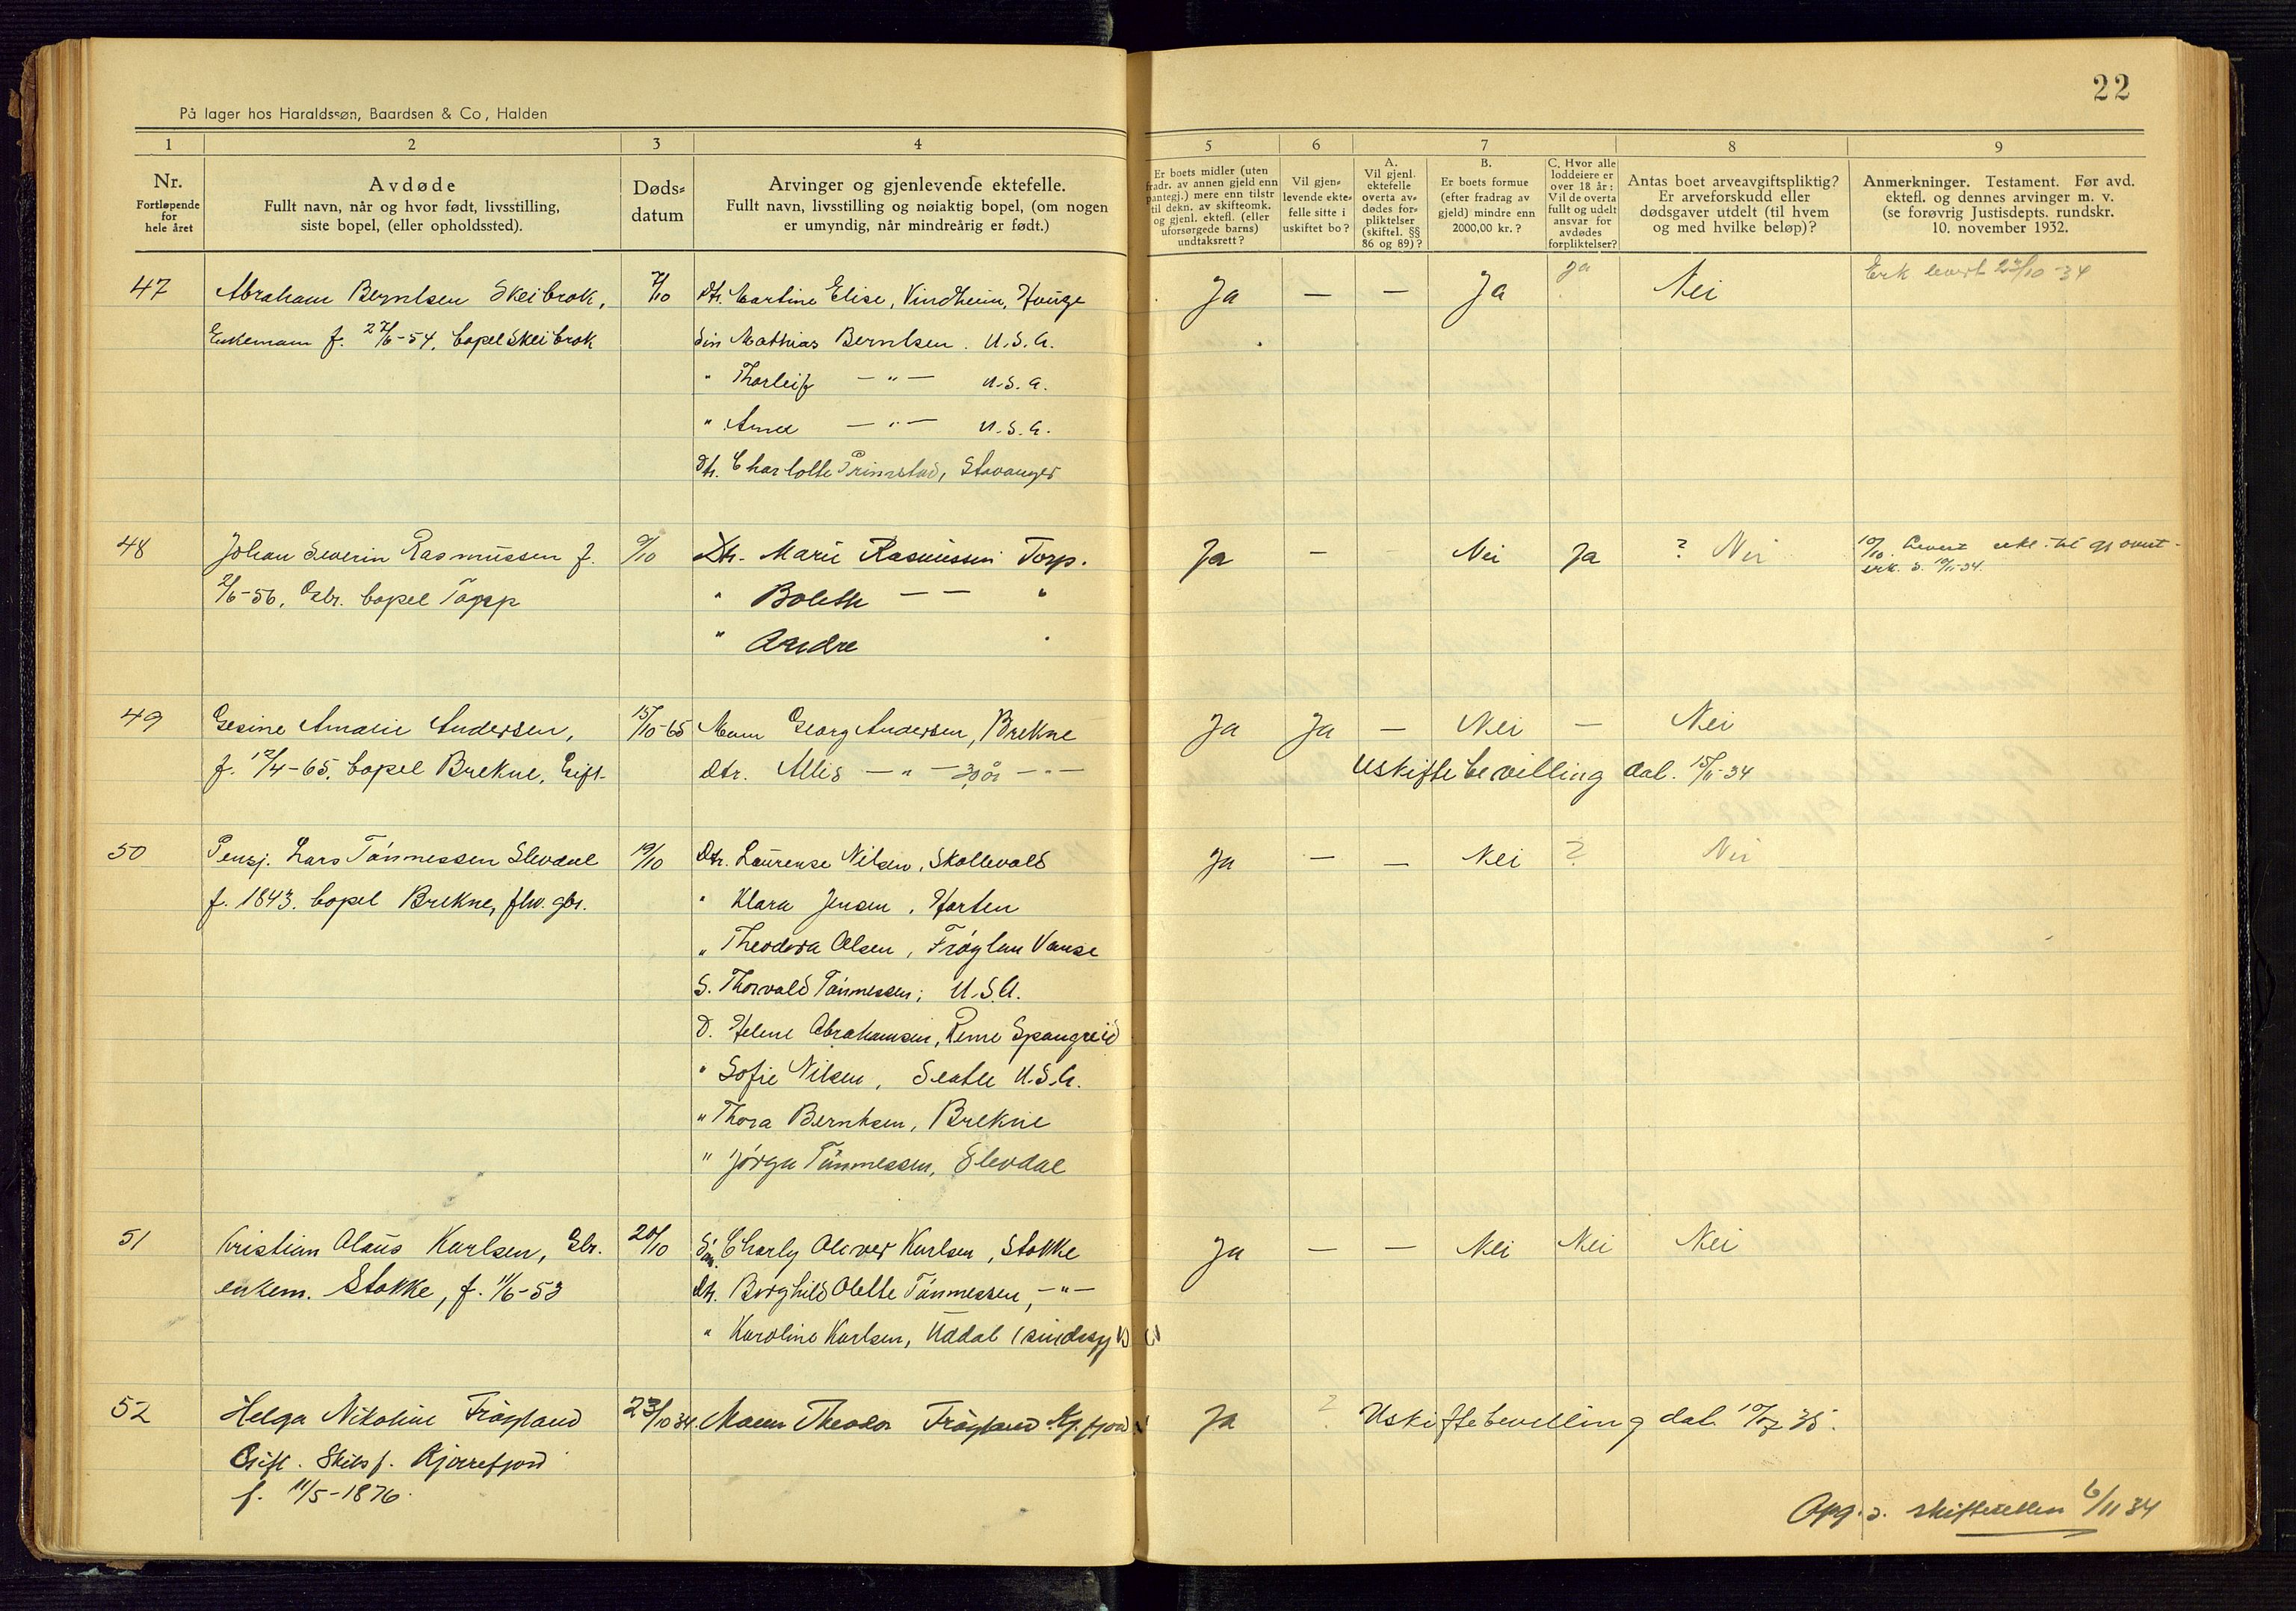 22
På lager hos Haraldssøn, Baardsen & Co, Halden
1 2 3 4 5 6 7 8 9
Nr.
Fortløpende
for
hele året
Avdøde
Fullt navn, når og hvor født, livsstilling,
siste bopel, (eller opholdssted).
Døds-
datum
Arvinger og gjenlevende ektefelle.
Fullt navn, livsstilling og nøiaktig bopel, (om nogen
er umyndig, når mindreårig er født.)
Er boets midler (uten
fradr. av annen gjeld enn
pantegj.) mere enn tilstr
til dekn. av skifteomk.
og gjenl. ektefl. (eller
uforsørgede barns)
undtaksrett?
Vil gjen-
levende ekte-
felle sitte i
uskiftet bo?
A.
Vil gjenl.
ektefelle
overta av-
dødes for-
pliktelser
(skiftel. §§
86 og 89)?
B.
Er boets formue
(efter fradrag av
gjeld) mindre enn
2000,00 kr.?
C. Hvor alle
loddeiere er
over 18 år:
Vil de overta
fullt og udelt
ansvar for
avdødes
forpliktelser?
Antas boet arveavgiftspliktig?
Er arveforskudd eller
dødsgaver utdelt (til hvem
og med hvilke beløp)?
Anmerkninger. Testament. Før avd.
ektefl. og dennes arvinger m. v.
(se forøvrig Justisdepts. rundskr.
10. november 1932.
47 Abraham Berntsen Skeibrok, 7/10 Dtr. Martine Elise, Vindheim, Houge Ja — — Ja Ja Nei Erk levert 27/10-34
Enkemann f. 27/6-54. bopel Skeibrok Søn Mathias Berntsen. U.S.A.
" Thorleif — " — U.S.A.
" Arne — " — U.S.A.
Dtr. Charlotte Primstad, Stavanger
48 Johan Severin Rasmussen f. 9/10 Dtr. Marie Rasmussen Torp. Ja — — Nei Ja ? Nei 10/10. Levert
erk. d. 10/11-34.
2/6-56. Gbr. bopel Torp " Bolette — — "
" Andre "
49 Gesine Amalie Andersen, 15/10-65 Mann Georg Andersen, Brekne Ja Ja — Nei — Nei
f. 12/4-65. bopel Brekne, Gift. Dtr. Allis — " — 30 år — " —
Uskiftebevilling dat. 15/11-34
50 Pensj. Lars Tönnessen Slevdal 19/10 Dtr. Laurense Nilsen, Skollevold Ja — — Nei ? Nei
f. 1843. bopel Brekne, fhv. gbr. " Klara Jensen, Horten
" Theodora Olsen, Frøylan Vanse
S. Thorvald Tönnessen; U.S.A.
D. Helene Abrahamsen, Reme Spangreid
" Sofie Nilsen, Seatle U.S.A.
" Thora Berntsen, Brekne
" Jørga Tönnessen, Slevdal
51 Kristian Olaus Karlsen, Gbr. 20/10 Søn Charly Oliver Karlsen, Stokke Ja — — Nei Nei Nei
enkem. Stokke, f. 11/6-53 Dtr. Borghild Olette Tönnessen, — " —
" Karoline Karlsen, Uddal (sindssyk)
52 Helga Nikoline Frøyland 23/10 34. Mann Theodor Frøyland Kj.fjord Ja ? Uskiftebevilling dat. 35.
Gift. Skilsf. Kjørrefjord
f. 11/5-1876.
Opg. s. skifteretten 6/11 34